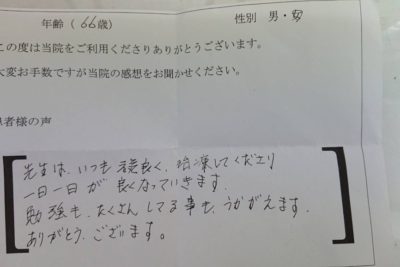 年齢（66歳） 性別 男・女
この度は当院をご利用くださりありがとうございます。
大変お手数ですが当院の感想をお聞かせください。
患者様の声
先生は、いつも 良く、治療してくださり
一日一日が 良くなっていきます。
勉強も、たくさんしてる事も、うかがえます。
ありがとう、ございます。